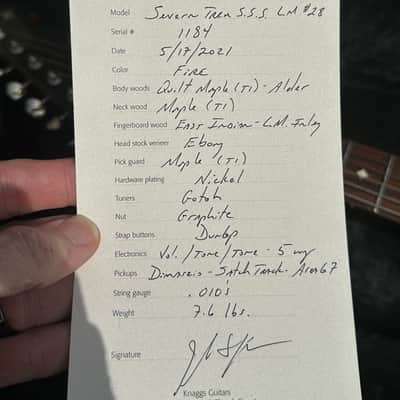 Model Severn Trem S.S.S. LM #28
Serial # 1184
Date 5/17/2021
Color Fire
Body woods Quilt Maple (T1) - Alder
Neck wood Maple (T1)
Fingerboard wood East Indian - L.M. Inlay
Head stock veneer Ebony
Pick guard Maple (T1)
Hardware plating Nickel
Tuners Gotoh
Nut Graphite
Strap buttons Dunlop
Electronics Vol./Tone/Tone - 5 way
Pickups Dimarzio - Area 67
String gauge .010's
Weight 7.6 lbs.
Signature
Knaggs Guitars